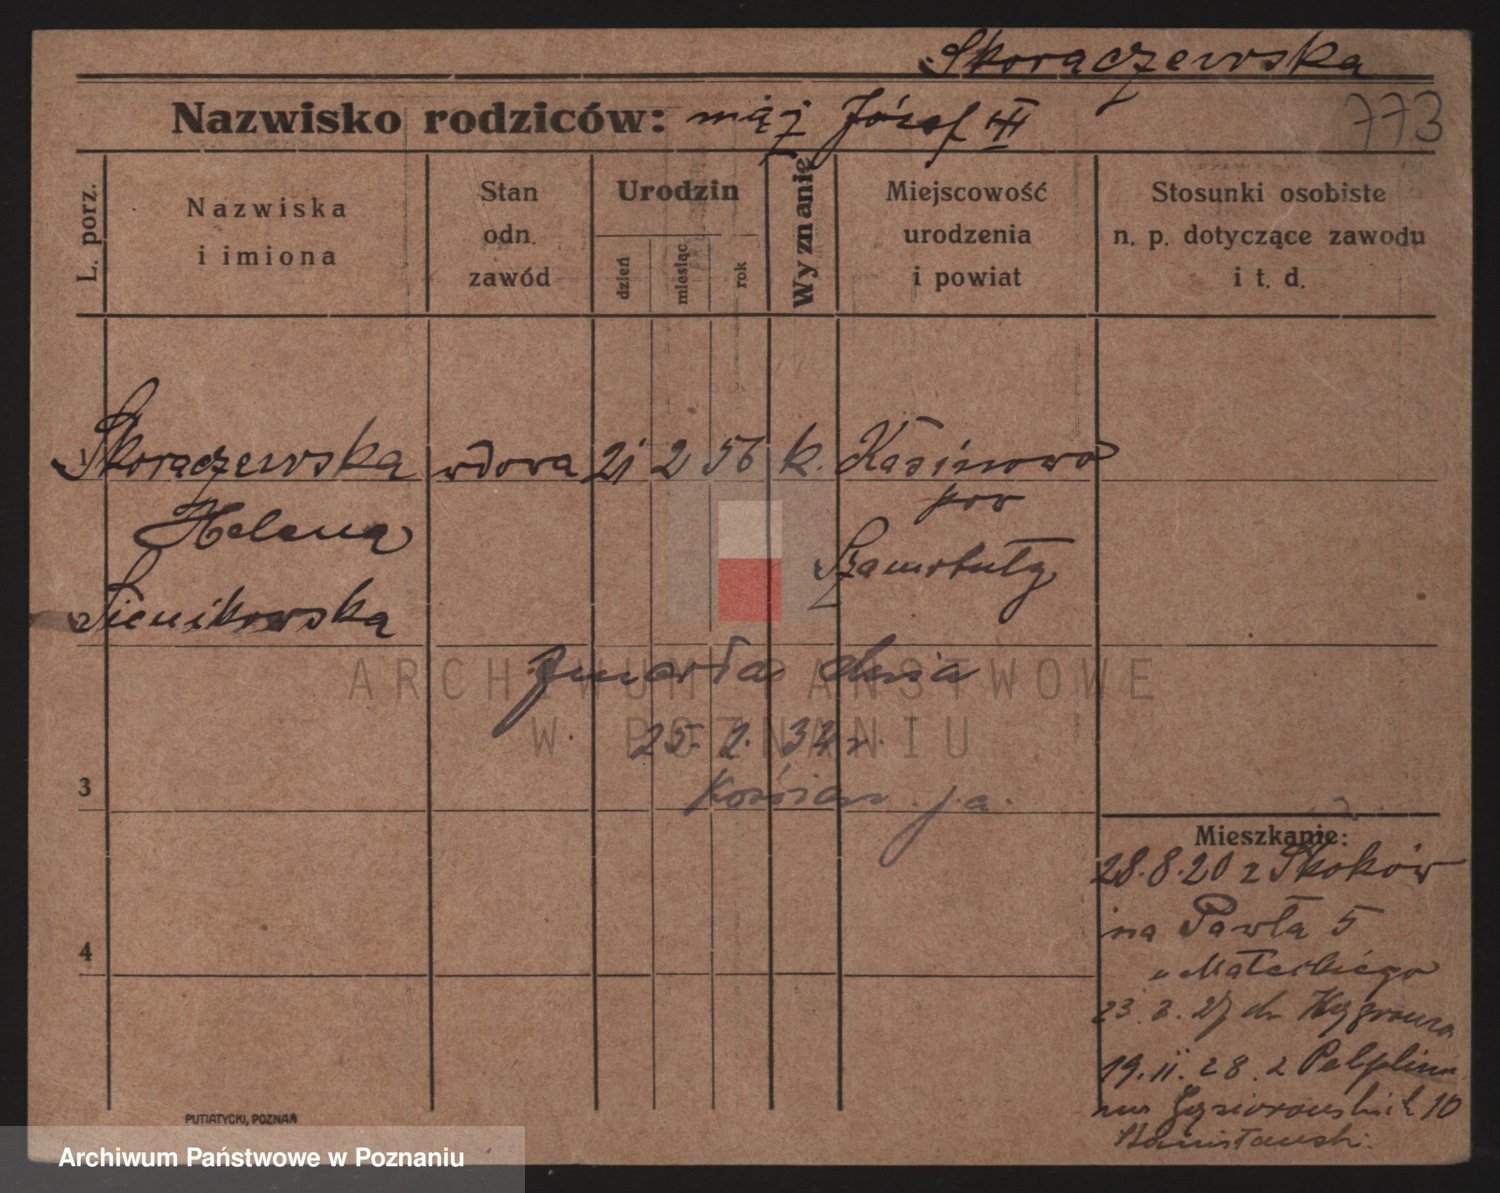 Skorączewska
Nazwisko rodziców: mąż Józef III
773
L. porz.
Nazwiska
i imiona
Stan
odn.
zawód
Urodzin
dzień
miesiąc
rok
Wyznanie
Miejscowość
urodzenia
i powiat
Stosunki osobiste
n. p. dotyczące zawodu
i t. d.
1 Skorączewska wdowa 21 2 56 k. Kasinowo
pow
Helena
Szamotuły
2 Sienikowska
zmarła dnia
25. 2. 37 r.
Kościan
3
Mieszkanie:
28.8.20 z Skoków
na Pawła 5
u Małeckiego
4
23. 3. 27 do
19.II.28. z Pelplina
10
PUTIATYCKI, POZNAŃ
ARCHIWUM PAŃSTWOWE
W POZNANIU
Archiwum Państwowe w Poznaniu